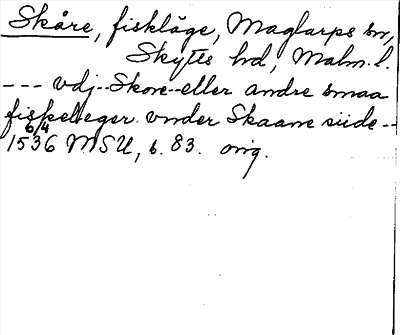 Skåre, fiskläge, Maglarps sn,
Skytts hd, Malm. l.
--- vdj--Skore--eller andre smaa
fiskeleger vnder Skaane siide--
6/4
1536 MSU, b. 83. orig.